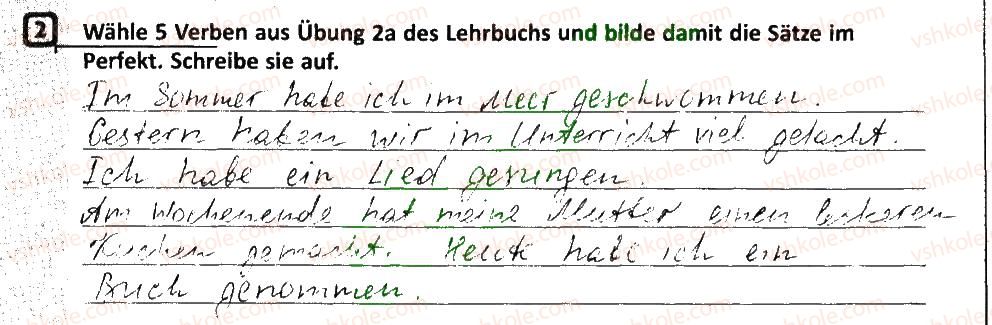 2 Wähle 5 Verben aus Übung 2a des Lehrbuchs und bilde damit die Sätze im
Perfekt. Schreibe sie auf.
Im Sommer habe ich im Meer geschwommen.
Gestern haben wir im Unterricht viel gelacht.
Ich habe ein Lied gesungen.
Am Wochenende hat meine Mutter einen leckeren
Kuchen gemacht. Heute habe ich ein
Buch genommen.